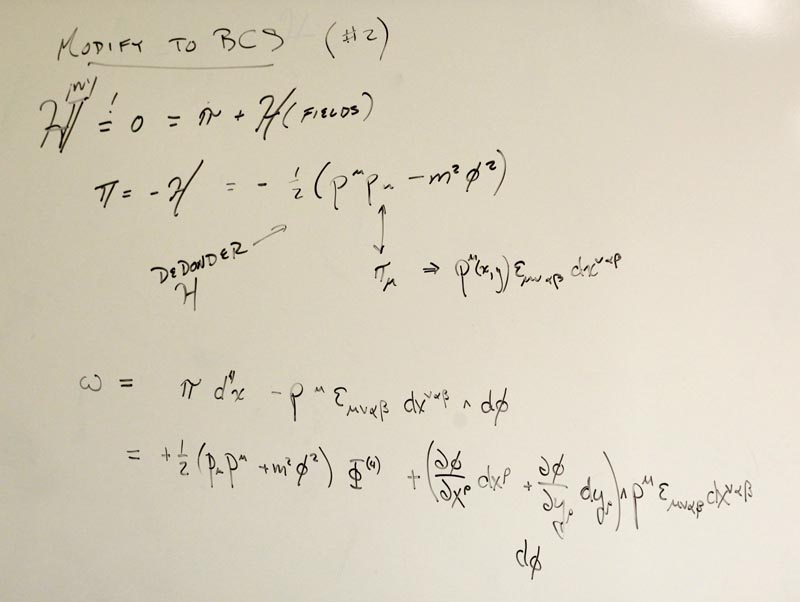 MODIFY TO BCS (#2)
ℋ ≐ 0 = π + ℋ(FIELDS)
π = -ℋ = - 1/2 (p^μ p_μ - m² φ²)
DEDONDER
ℋ
π_μ ⇒ p^μ(x,y) ε_{μναβ} dx^{ναβ}
ω = π d⁴x - p^μ ε_{μναβ} dx^{ναβ} ∧ dφ
= + 1/2 (p_μ p^μ + m² φ²) Φ^{(4)} + (∂φ/∂x^ρ dx^ρ + ∂φ/∂y_ρ dy_ρ) ∧ p^μ ε_{μναβ} dx^{ναβ}
dφ